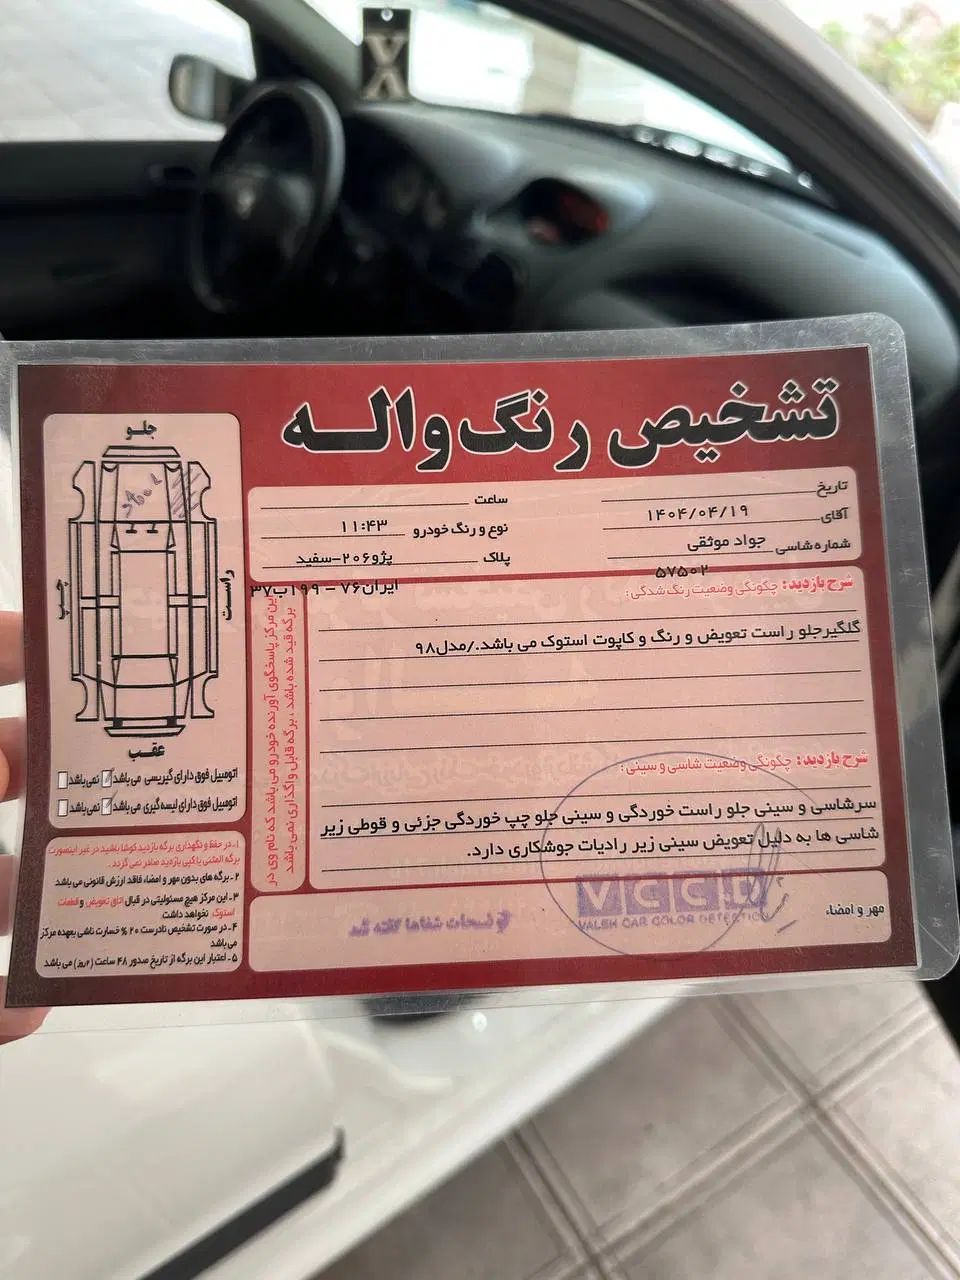 تشخیص رنگ واله
تاریخ
ساعت
آقای
۱۴۰۴/۰۴/۱۹
نوع و رنگ خودرو
۱۱:۴۳
شماره شاسی
جواد موثقی
پلاک
پژو۲۰۶-سفید
۵۷۵۰۲
ایران۷۶ - ۱۹۹ب۳۷
شرح بازدید: چگونگی وضعیت رنگ شدگی:
گلگیرجلو راست تعویض و رنگ و کاپوت استوک می باشد./مدل۹۸
شرح بازدید: چگونگی وضعیت شاسی و سینی:
سرشاسی و سینی جلو راست خوردگی و سینی جلو چپ خوردگی جزئی و قوطی زیر
شاسی ها به دلیل تعویض سینی زیر رادیات جوشکاری دارد.
مهر و امضاء
VCCD
VALEH CAR COLOR DETECTION
توضیحات شفاها گفته شد
این مرکز پاسخگوی آورنده خودرو می باشد که نام وی در
برگه قید شده باشد، برگه قابل واگذاری نمی باشد
جلو
چپ
راست
عقب
اتومبیل فوق دارای گیریسی می باشد نمی باشد
اتومبیل فوق دارای لیسه گیری می باشد نمی باشد
۱- در حفظ و نگهداری برگه بازدید کوشا باشید در غیر اینصورت
برگه المثنی یا کپی بازدید صادر نمی گردد.
۲- برگه های بدون مهر و امضاء فاقد ارزش قانونی می باشد
۳- این مرکز هیچ مسئولیتی در قبال اتاق تعویض و قطعات
استوک نخواهد داشت
۴- در صورت تشخیص نادرست ۲۰ % خسارت ناشی بعهده مرکز
می باشد
۵- اعتبار این برگه از تاریخ صدور ۴۸ ساعت (۲روز) می باشد